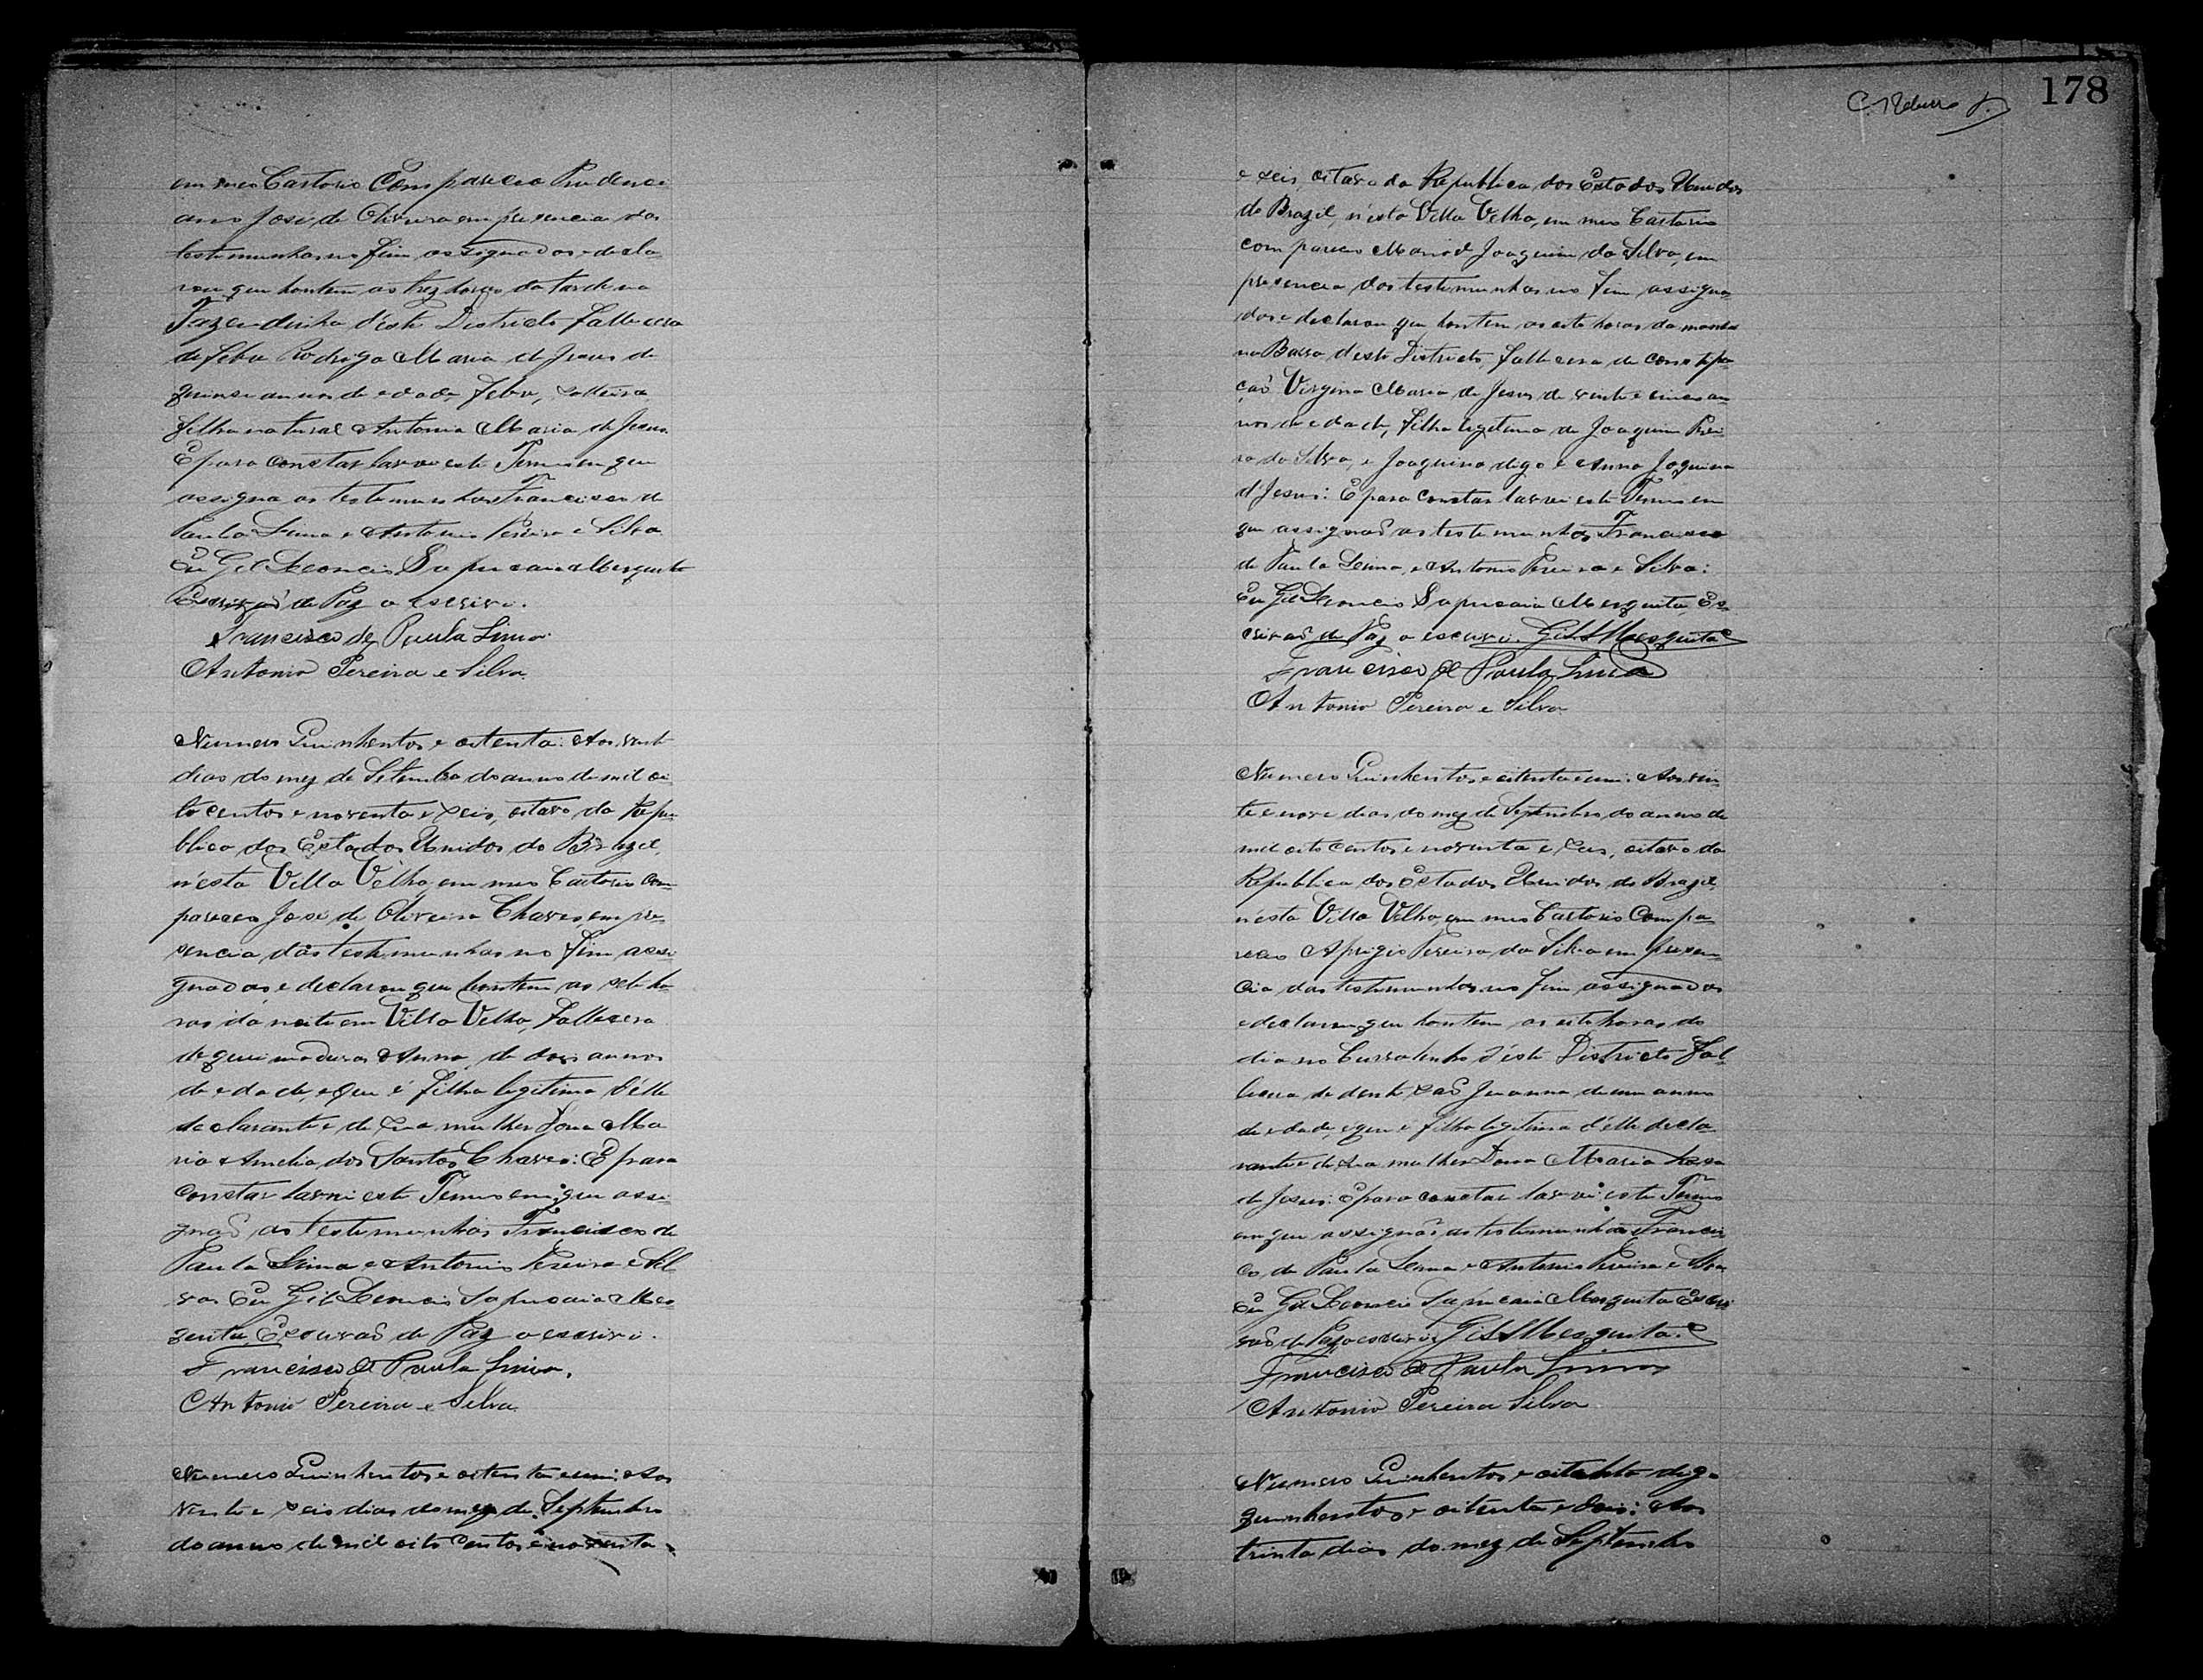 em meo Cartorio Compareceo Prudenci
ano José de Oliveira em presencia das
testemunhas no fim assignados e decla
rou que hontem as trez horas da tarde na
Fazendinha d'este Districto fallecera
de febre Rodriga Maria de Jesus de
quinse annos de edade, solteira
filha natural Antonia Maria de Jesus.
E para constar lavrei este Termo em que
assigna as testemunhas Francisco de
Paula Lima e Antonio Pereira e Silva
Eu Gil Leoncio Sapucaia Mesquita
Escrivaõ de Paz o escrivi.
Francisco de Paula Lima
Antonio Pereira e Silva.
Numero Quinhentos e oitenta: Aos vinte
dias do mez de Setembro do anno de mil oi
to centos e noventa e seis, oitavo da Repu
blica dos Estados Unidos do Brazil,
n'esta Villa Velha, em meo Cartorio com
pareceo José de Oliveira Chaves, em pre-
sencia das testemunhas no fim assi
gnadas e declarou que hontem as sete ho
ras da noite em Villa Velha, fallecera
de queimaduras Anna, de dois annos
de edade, e que é filha legitima d'elle
declarante e de sua mulher Dona Ma
ria Amelia dos Santos Chaves: E para
constar lavrei este Termo em que assi
gnaõ as testemunhas Francisco de
Paula Lima e Antonio Pereira e Sil
va. Eu Gil Leoncio Sapucaia Mes-
quita, Escrivaõ de Paz o escrivi.
Francisco de Paula Lima.
Antonio Pereira e Silva.
Numero Quinhentos e oitenta e um: Aos
vinte e seis dias do mez de Septembro
do anno de mil oito centos e noventa
178
e seis, oitavo da Republica dos Estados Unidos
do Brazil, n'esta Villa Velha, em meo Cartorio
compareceo Manoel Joaquim da Silva, em
presencia das testemunhas no fim assigna
das e declarou que hontem as oito horas da manha
na Barra d'este Districto, fallecera de constipa
çaõ Virgina Maria de Jesus de vinte e cinco an
nos de edade, filha legitima de Joaquim Perei-
ra da Silva, e Joaquina digo e Anna Joaquina
d'Jesus: E para constar lavrei este Termo em
que assignaõ as testemunhas Francisco
de Paula Lima, e Antonio Pereira e Silva:
Eu Gil Leoncio Sapucaia Mesquita Es-
crivaõ de Paz o escrivi. Gil L S Mesquita
Francisco de Paula Lima
Antonio Pereira e Silva
Numero Quinhentos e oitenta e um: Aos vin
te e nove dias do mez de Septembro do anno de
mil oito centos e noventa e seis, oitavo da
Republica dos Estados Unidos do Brazil,
n'esta Villa Velha em meo Cartorio Compa
receo Aprigio Pereira da Silva em presen-
cia das testemunhas no fim assignados
e declarou que hontem as oito horas do
dia no Curralinho d'este Districto fal
lecera de dentisaõ Joanna de um anno
de edade, e que é filha legitima d'elle decla
rante e de sua mulher Dona Maria Rosa
de Jesus: E para constar lavrei este Termo
em que assignaõ as testemunhas Francis
co de Paula Lima e Antonio Pereira e Silva
Eu Gil Leoncio Sapucaia Mesquita Escri
vaõ de Paz o escrivi Gil L S Mesquita
Francisco de Paula Lima
Antonio Pereira Silva
Numero Quinhentos e oitenta digo
quinhentos e oitenta e dois: Aos
trinta dias do mez de Septembro